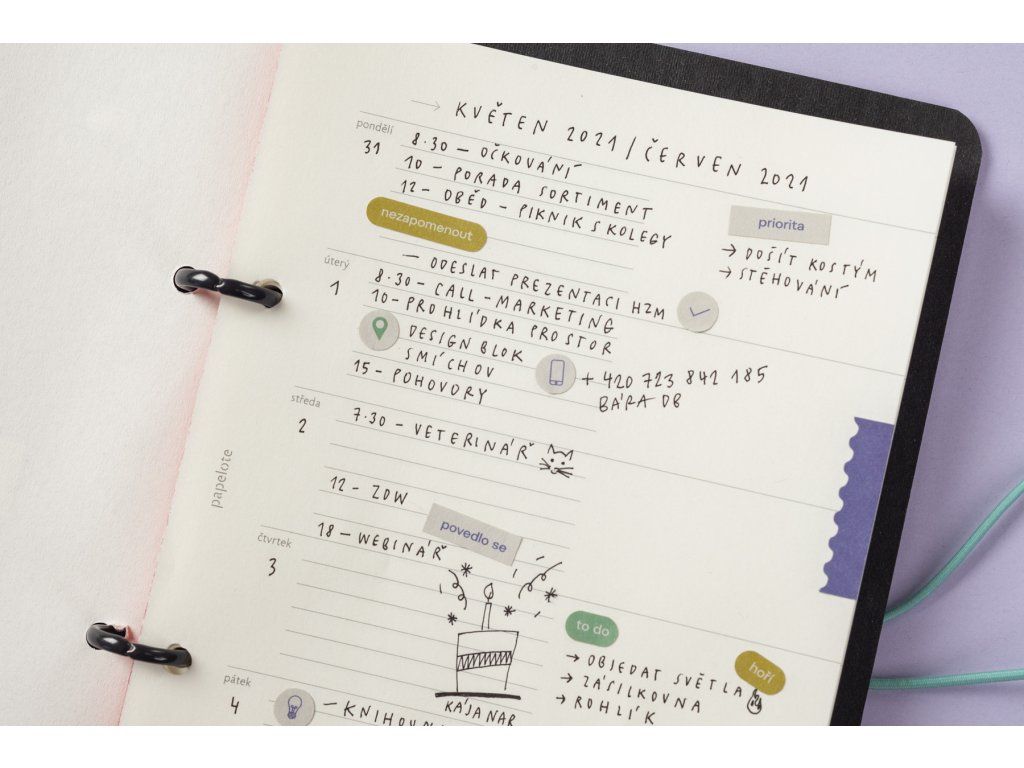 → KVĚTEN 2021 / ČERVEN 2021
pondělí
31
8.30 – OČKOVÁNÍ
10 – PORADA SORTIMENT
12 – OBĚD – PIKNIK S KOLEGY
nezapomenout
– ODESLAT PREZENTACI HZM
priorita
→ DOŠÍT KOSTÝM
→ STĚHOVÁNÍ
úterý
1
8.30 – CALL – MARKETING
10 – PROHLÍDKA PROSTOR
DESIGN BLOK
SMÍCHOV
15 – POHOVORY
+ 420 723 842 185
BÁRA DB
středa
2
7.30 – VETERINÁŘ
12 – ZOW
18 – WEBINÁŘ
povedlo se
papelote
čtvrtek
3
KÁJA NAR
to do
→ OBJEDAT SVĚTLA
→ ZÁSILKOVNA
→ ROHLÍK
hoří
pátek
4